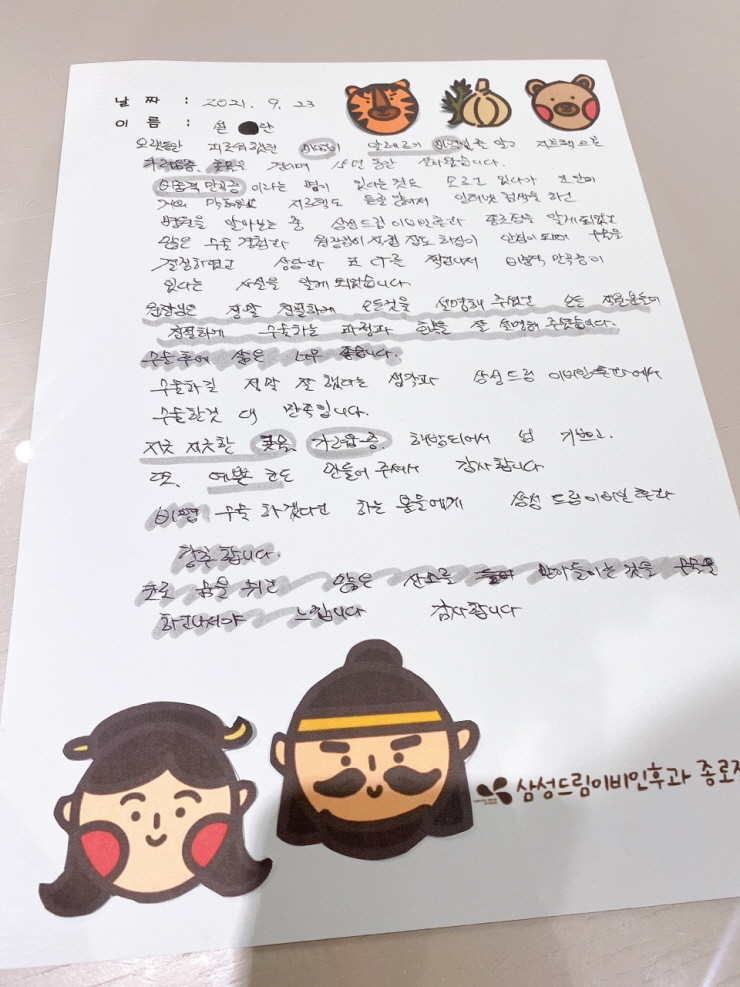 날 짜 : 2021. 9. 23
이 름 : 설 란
오랫동안 피로워했던 알레르기 비염약을 먹고 지르텍으로
가려움증, 콧물을 견디며 사년 동안 살아왔습니다.
비중격 만곡증 이라는 병이 있다는 것도 모르고 있다가 코안이
거의 막히면서 지르텍도 듣질 않아서 인터넷 검색을 하고
병원을 알아보는 중 삼성드림이비인후과 종로점을 알게되었고
많은 수술 경험과 원장님이 직접 집도 하심이 안심이 되며 수술을
결정하였고 상담과 코 CT를 찍고나서 비중격 만곡증이
있다는 사실을 알게 되었습니다.
원장님은 정말 친절하게 모든것을 설명해 주셨고 모든 직원분들이
친절하게 수술하는 과정과 을 잘 설명해 주셨습니다.
수술후에 삶은 너무 좋습니다.
수술하길 정말 잘 했다는 생각과 삼성드림 이비인후과에서
수술한것 대 만족입니다.
지긋 지긋한 콧물, 가려움증, 해방되어서 넘 기쁘고,
또, 예쁜 코도 만들어 주셔서 감사합니다
비평 수술 하겠다고 하는 분들에게 삼성 드림이비인후과
강추 합니다.
코로 숨을 쉬고 많은 산소를 받아들이는 것을 수술을
하고나서야 느낍니다 감사합니다
삼성드림이비인후과 종로